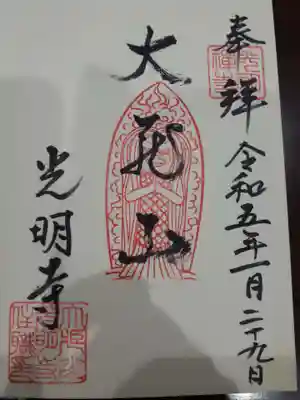 奉拝
令和五年一月二十九日
大龍山
光明寺